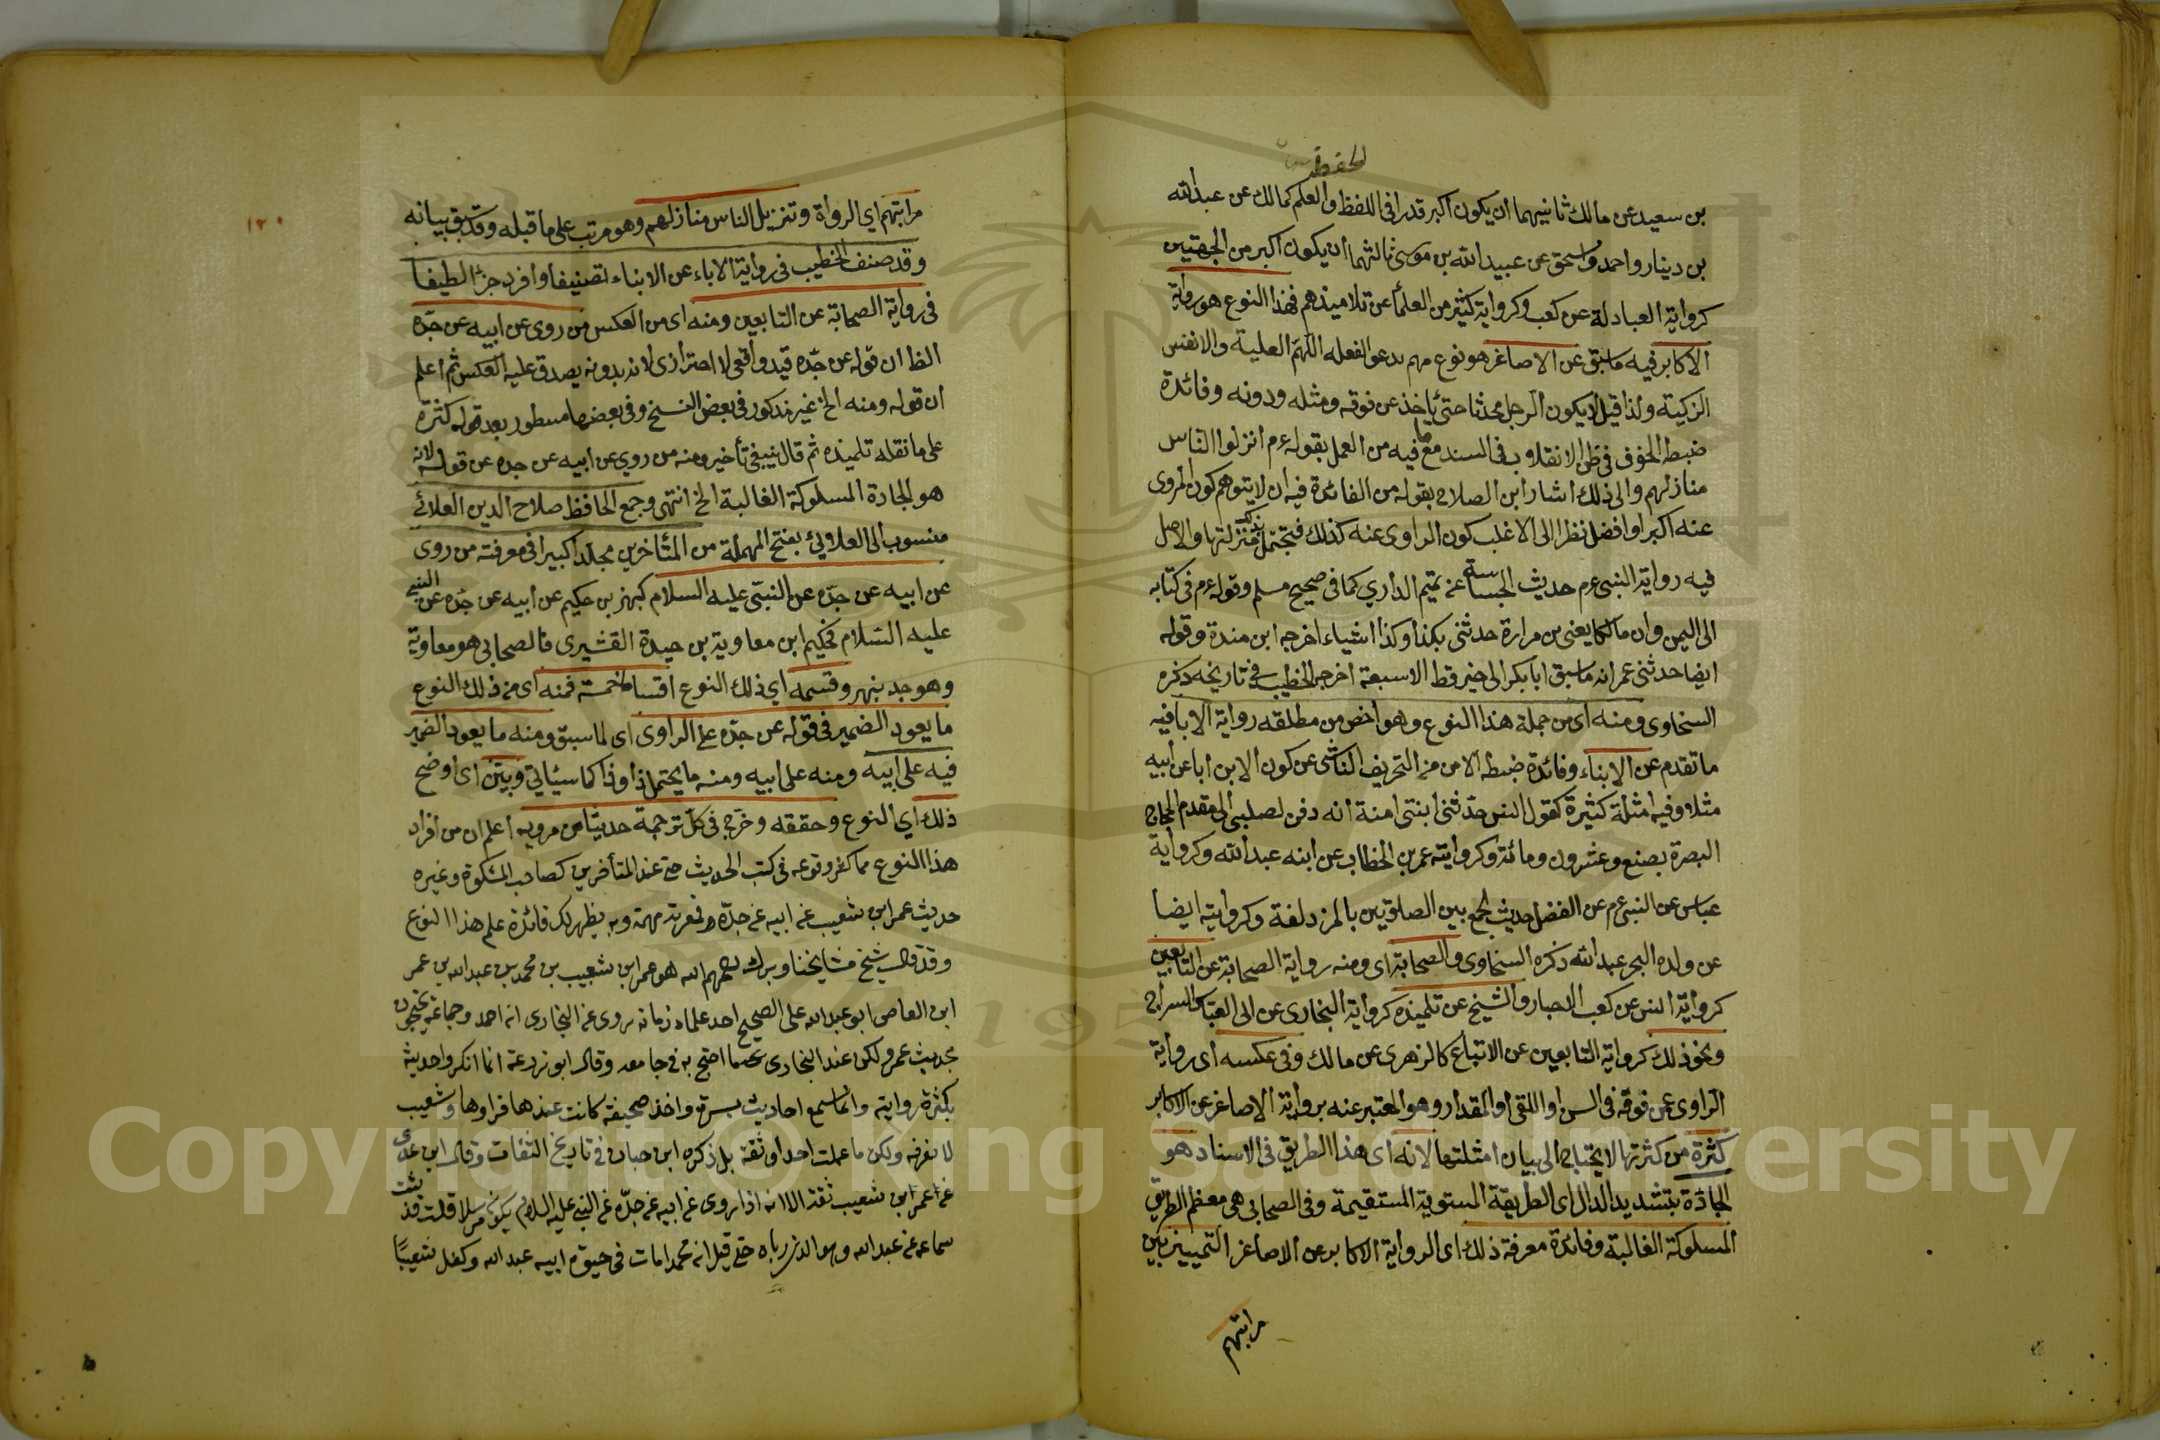 الحفظ
بن سعيد عن مالك ثانيهما ان يكون اكبر قدرا في اللفظ والعلم كمالك عن عبدالله
بن دينار واحمد واسحق عن عبيدالله بن موسى ثالثهما ان يكون اكبر من الجهتين
كرواية العبادلة عن كعب وكرواية كثير من العلماء عن تلاميذهم فهذا النوع هو رواية
الاكابر فيه ما سبق عن الاصاغر هو نوع مهم يدعو الفعله الهمم العلية والانفس
الزكية ولذا قيل لا يكون الرجل محدثا حتى يأخذ عن فوقه ومثله ودونه وفائدة
ضبط الخوف في ظن الانقلاب في السند مع ما فيه من العمل بقوله عم انزلوا الناس
منازلهم والى ذلك اشار ابن الصلاح بقوله من الفائدة فيه ان لا يتوهم كون المروى
عنه اكبر او افضل نظرا الى الاغلب كون الراوى عنه كذلك فتجهل بذلك منزلتها والاصل
فيه رواية النبى عم حديث الجساسة عن تميم الداري كما في صحيح مسلم وقوله عم في كتابه
الى اليمن وان مالكا يعنى بن مرارة حدثنى بكذا وكذا اشياء اخرجه ابن مندة وقوله
ايضا حدثنى عمر انه ما سبق ابا بكر الى خير قط الا سبقه اخرجه الخطيب في تاريخه ذكره
السخاوى ومنه اى من جملة هذا النوع وهو اخص من مطلقه رواية الابا فيه
ما تقدم عن الابناء وفائدة ضبطه الامن من التحريف الناشى عن كون الابن ابا عن ابيه
مثلا وفيه امثلة كثيرة كقول انس حدثنى ابنتى امنة انه دفن لصلبى الى مقدم الحجاج
البصرة بضع وعشرون ومائة وكرواية عمر بن الخطاب عن ابنه عبدالله وكرواية
عباس عن النبى عم عن الفضل حديث الجمع بين الصلوتين بالمزدلفة وكروايته ايضا
عن ولده البحر عبدالله ذكره السخاوى والصحابة اى ومنه رواية الصحابة عن التابعين
كرواية انس عن كعب الاحبار والشيخ عن تلميذه كرواية البخارى عن ابى العباس السراج
ونحو ذلك كرواية التابعين عن الاتباع كالزهرى عن مالك وفى عكسه اى رواية
الراوى عن فوقه فى السن او اللقى او المقدار وهو المعتبر عنه برواية الاصاغر عن الاكابر
كثرة من كثرتها لا يحتاج الى بيان امثلتها لانه اى هذا الطريق فى الاسناد هو
الجادة بتشديد الدال اى الطريقة المستوية المستقيمة وفى الصحابى هى معظم الطريق
المسلوكة الغالبة وفائدة معرفة ذلك اى الرواية الاكابر عن الاصاغر التمييز بين
مراتبهم
١٢٠
مراتبهم اى الرواة وتنزيل الناس منازلهم وهو مرتب على ما قبله وقد سبق بيانه
وقد صنف الخطيب فى رواية الاباء عن الابناء تصنيفا وافرد جزأ لطيفا
فى رواية الصحابة عن التابعين ومنه اى من العكس من روى عن ابيه عن جده
الظ ان قوله عن جده قيد واقعى لا احترازى لانه بدونه يصدق عليه العكس ثم اعلم
ان قوله ومنه الخ غير مذكور فى بعض النسخ وفى بعضها مسطور بعد قوله كثرة
على ما نقله تلميذه ثم قال ينبغى تأخير ومنه من روي عن ابيه عن جده عن قوله لانه
هو الجادة المسلوكة الغالبة الخ انتهى وجمع الحافظ صلاح الدين العلائى
منسوب الى العلاوئ بفتح المهملة من المتأخرين مجلدا كبيرا فى معرفة من روى
عن ابيه عن جده عن النبى عليه السلام كبهز بن حكيم عن ابيه عن جده عن النبى
عليه السلام فحكيم ابن معاوية بن حيدة القشيرى فالصحابى هو معاوية
وهو جد بهز وقسمه اي ذلك النوع اقساما خمسة فمنه اى من ذلك النوع
ما يعود الضمير فى قوله عن جده على الراوى اى لما سبق ومنه ما يعود الضمير
فيه على ابيه ومنه على ابيه ومنه ما يحتمل ذا وذا كما سيأتى وبين اى اوضح
ذلك اي النوع وحققه وخرج فى كل ترجمة حديثا من مرويه اعلم ان من افراد
هذا النوع مما كثر وقوعه فى كتب الحديث حتى عند المتأخرين كصاحب المشكوة وغيره
حديث عمر ابن شعيب عن ابيه عن جده ومعرفته مهمة وبه يظهر لك فائدة علم هذا النوع
وقد قال شيخ مشايخنا وبرك رحمهم الله هو عمر ابن شعيب بن محمد بن عبدالله بن عمر
ابن العاص ابو عبدالله على الصحيح احد علماء زمانه روى عن البخارى انه احمد وجماعة يحتجون
بحديث عمرو لكن عند البخارى ما احتج به فى جامعه وقال ابو زرعة انما انكروا حديثه
بكثرة روايته وانما سمع احاديث يسيرة واخذ صحيفة كانت عندها فرواها وشعيب
لا نعرفه ولكن ما علمت احدا وثقه بل ذكره ابن حبان فى تاريخ الثقات وقال ابن عدى
عن عمر ابن شعيب ثقة الا انه اذا روى عن ابيه عن جده عن النبى عليه السلام يكون مرسلا قلت قد ثبت
سماعه عن عبدالله وهو الذى رباه حتى قيل انه محمدا مات فى حيوة ابيه عبدالله وكفل شعيبًا
Copyright © King Saud University
195